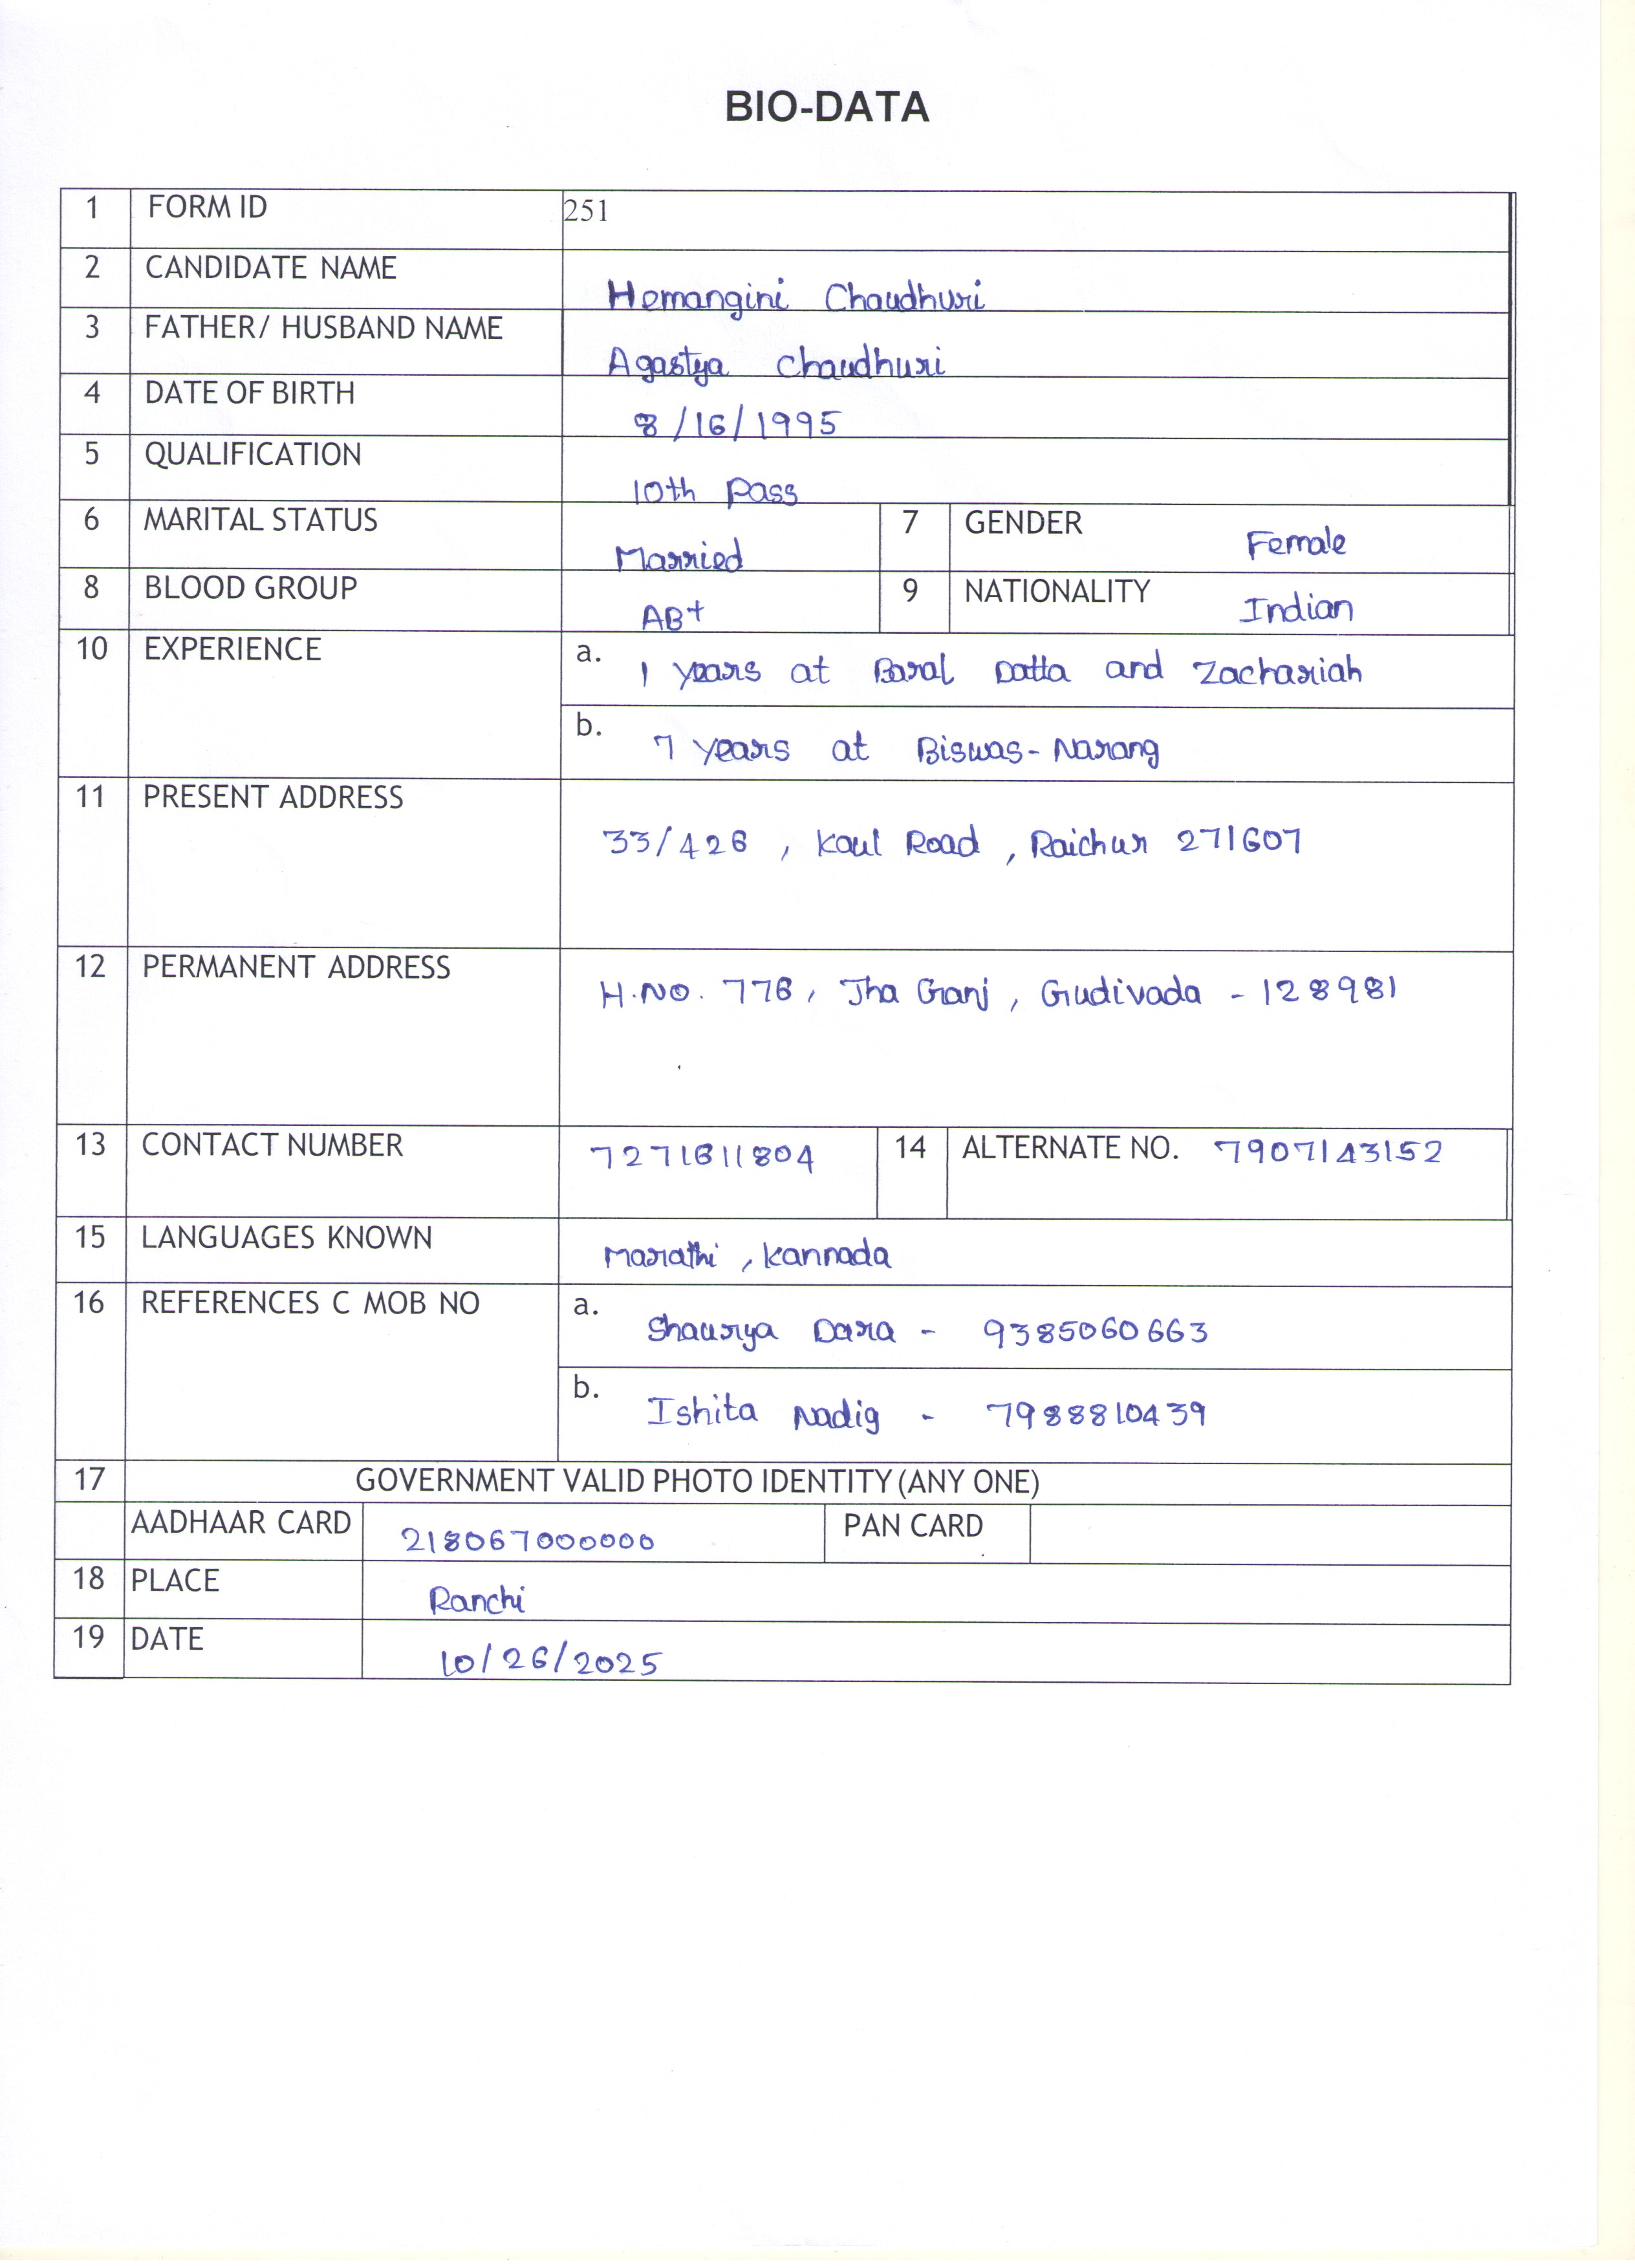 BIO-DATA
1 FORM ID 251
2 CANDIDATE NAME Hemangini Chaudhuri
3 FATHER/ HUSBAND NAME Agastya Chaudhuri
4 DATE OF BIRTH 8/16/1995
5 QUALIFICATION 10th Pass
6 MARITAL STATUS Married 7 GENDER Female
8 BLOOD GROUP AB+ 9 NATIONALITY Indian
10 EXPERIENCE a. 1 years at Baral Datta and Zachariah
b. 7 years at Biswas-Narang
11 PRESENT ADDRESS 33/426, Kaul Road, Raichur 271607
12 PERMANENT ADDRESS H.NO. 776, Jha Ganj, Gudivada - 128981
13 CONTACT NUMBER 7271611804 14 ALTERNATE NO. 7907143152
15 LANGUAGES KNOWN Marathi, Kannada
16 REFERENCES C MOB NO a. Shaurya Dara - 9385060663
b. Ishita Nadig - 7988810439
17 GOVERNMENT VALID PHOTO IDENTITY (ANY ONE)
AADHAAR CARD 218067000000 PAN CARD
18 PLACE Ranchi
19 DATE 10/26/2025